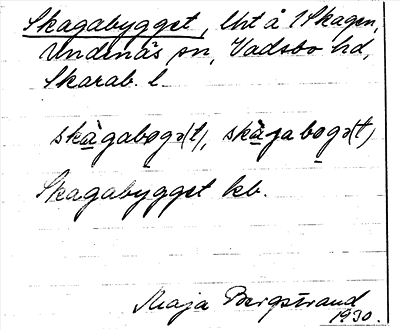 Skagabygget, Urt å 1 Skagen,
Undenäs sn, Vadsbo hd,
Skarab. l.
skàgabogə(t), skàgabogə(t)
Skagabygget kb.
Maja Bergstrand
1930.